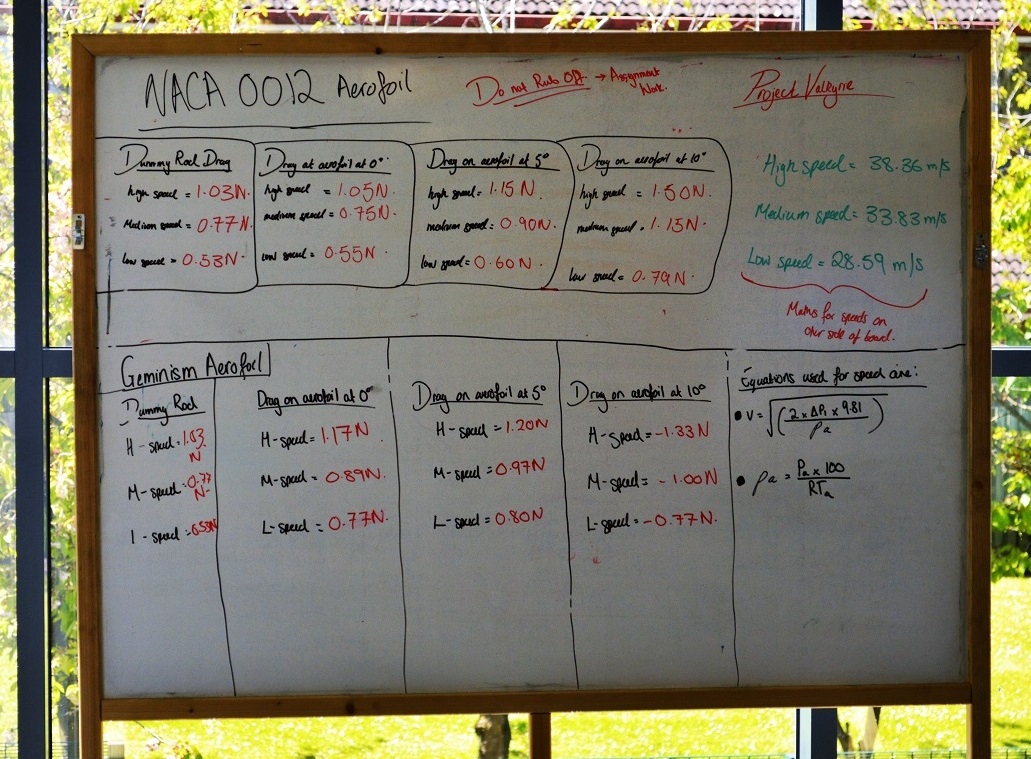 NACA 0012 Aerofoil
Do not Rub Off → Assignment
Work.
Project Valkyrie
Dummy Rod Drag
high speed = 1.03N.
Medium speed = 0.77N.
Low speed = 0.53N.
Drag at aerofoil at 0°
high speed = 1.05N.
medium speed = 0.75N.
Low speed = 0.55N
Drag on aerofoil at 5°
high speed = 1.15N.
medium speed = 0.90N.
low speed = 0.60N
Drag on aerofoil at 10°
high speed = 1.50N
medium speed = 1.15N.
low speed = 0.79N
High speed = 38.36 m/s
Medium speed = 33.83 m/s
Low speed = 28.59 m/s
Maths for speeds on
other side of board.
Geminism Aerofoil
Dummy Rod
H-speed = 1.03
N
M-speed = 0.77
N
L-speed = 0.53N
Drag on aerofoil at 0°
H-speed = 1.17N
M-speed = 0.89N.
L-speed = 0.77N.
Drag on aerofoil at 5°
H-speed = 1.20N
M-speed = 0.97N
L-speed = 0.80N
Drag on aerofoil at 10°
H-speed = -1.33N
M-speed = -1.00N
L-speed = -0.77N.
Equations used for speed are:
• V = √((2 × ΔPi × 9.81)/ρa)
• ρa = (Pa × 100)/RTa